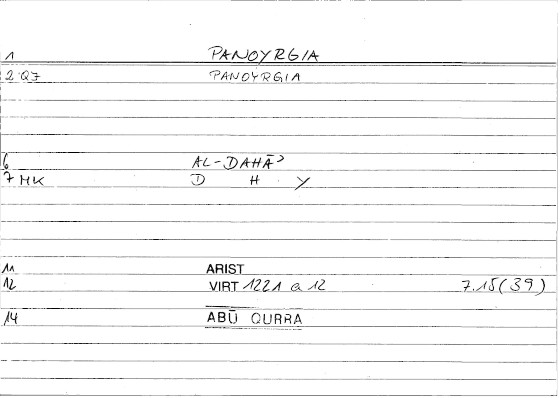 1 PANOYRGIA
2 QJ PANOYRGIA
6 AL-DAHĀʾ
7 MK D H Y
11 ARIST
12 VIRT 1221 a 12 7.15(39)
14 ABŪ QURRA